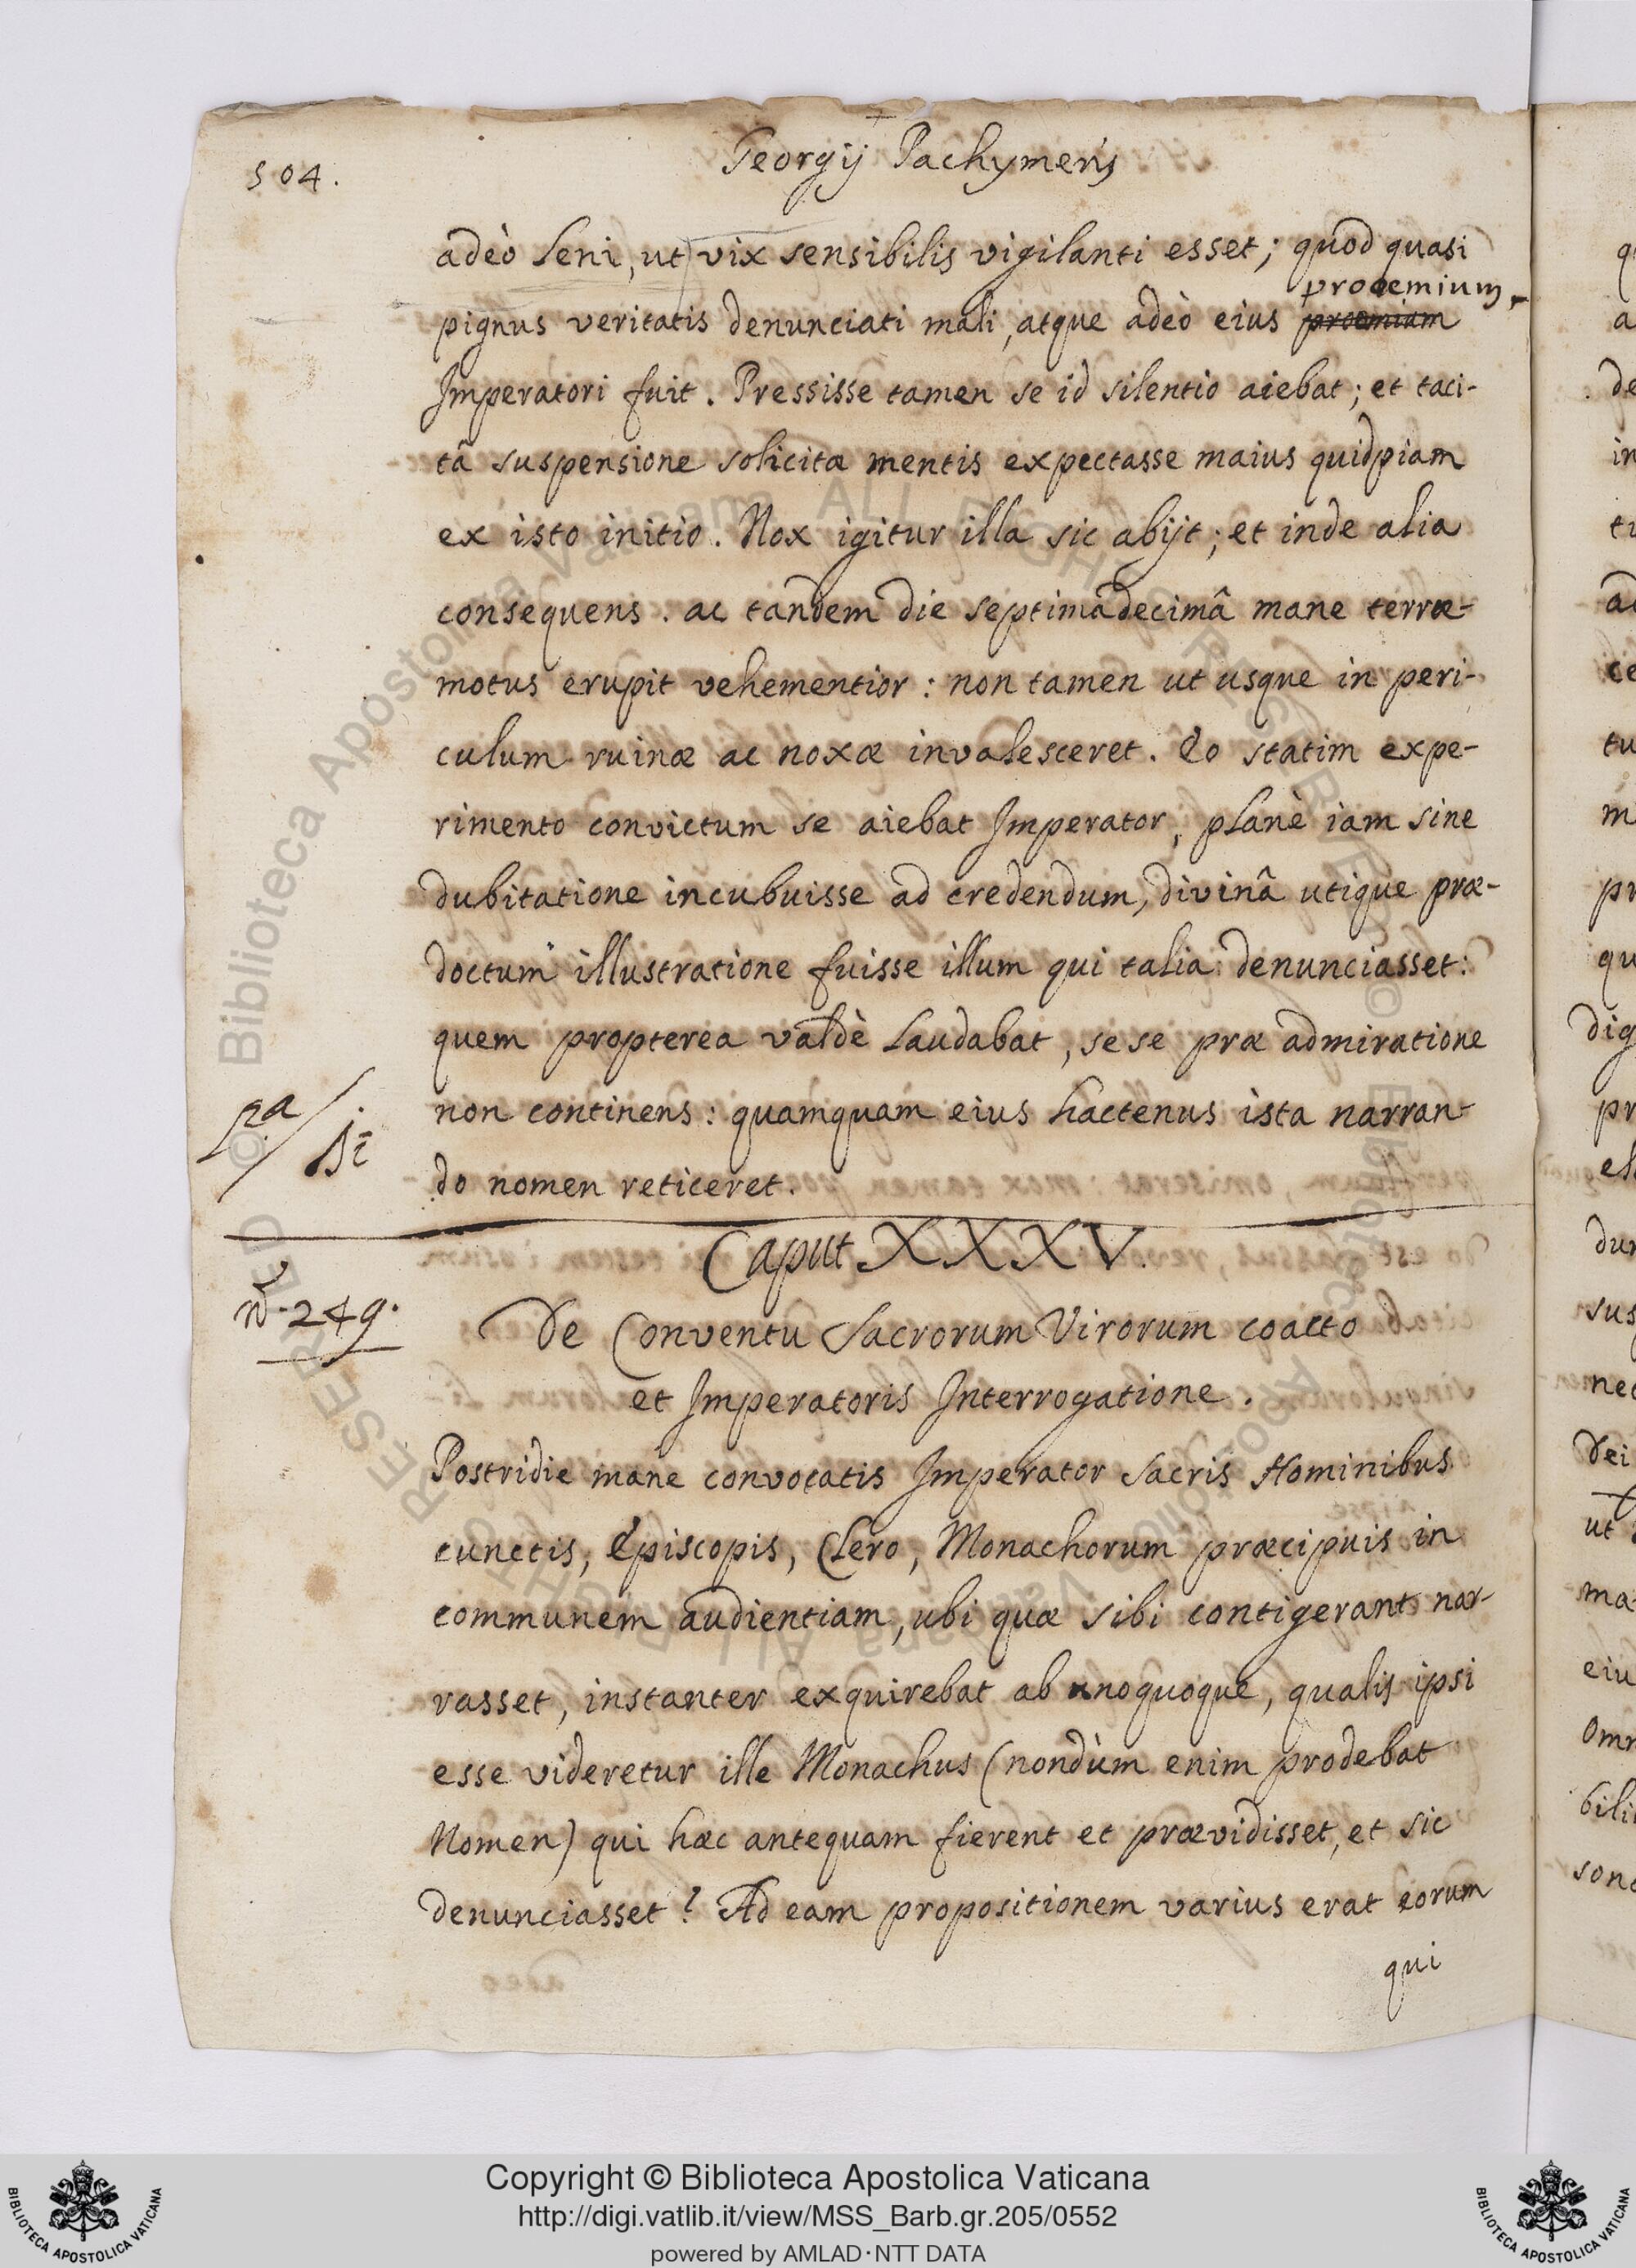 504.
Georgij Pachymeris
adeò leni, ut vix sensibilis vigilanti esset; quod quasi
prooemium
pignus veritatis denunciati mali, atque adeò eius proemium
Imperatori fuit. Pressisse tamen se id silentio aiebat; et taci-
tâ suspensione solicitæ mentis expectasse maius quidpiam
ex isto initio. Nox igitur illa sic abijt; et inde alia
consequens. ac tandem die septimâdecimâ mane terræ-
motus erupit vehementior: non tamen ut usque in peri-
culum ruinæ ac noxæ invalesceret. Eo statim expe-
rimento convictum se aiebat Imperator, planè iam sine
dubitatione incubuisse ad credendum, divinâ utique præ-
doctum illustratione fuisse illum qui talia denunciasset:
quem propterea valdè laudabat, se se præ admiratione
non continens: quamquam eius hactenus ista narran-
do nomen reticeret.
Caput XXXV.
n. 249.
De Conventu Sacrorum Virorum coacto
et Imperatoris Interrogatione.
Postridie mane convocatis Imperator Sacris Hominibus
cunctis, Episcopis, Clero, Monachorum præcipuis in
communem audientiam, ubi quæ sibi contigerant nar-
rasset, instanter exquirebat ab unoquoque, qualis ipsi
esse videretur ille Monachus (nondùm enim prodebat
Nomen) qui hæc antequam fierent et prævidisset, et sic
denunciasset? Ad eam propositionem varius erat eorum
qui
Copyright © Biblioteca Apostolica Vaticana
http://digi.vatlib.it/view/MSS_Barb.gr.205/0552
powered by AMLAD·NTT DATA
BIBLIOTECA APOSTOLICA VATICANA
BIBLIOTECA APOSTOLICA VATICANA